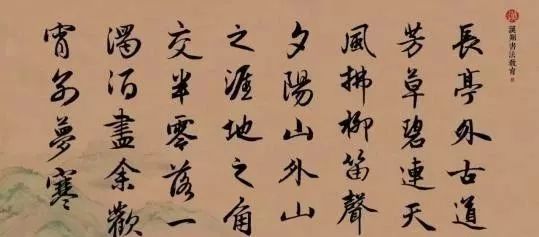 漢翔書法教育
長亭外古道
芳草碧連天
風拂柳笛聲
夕陽山外山
之涯地之角
交半零落一
濁酒盡余歡
宵別夢寒